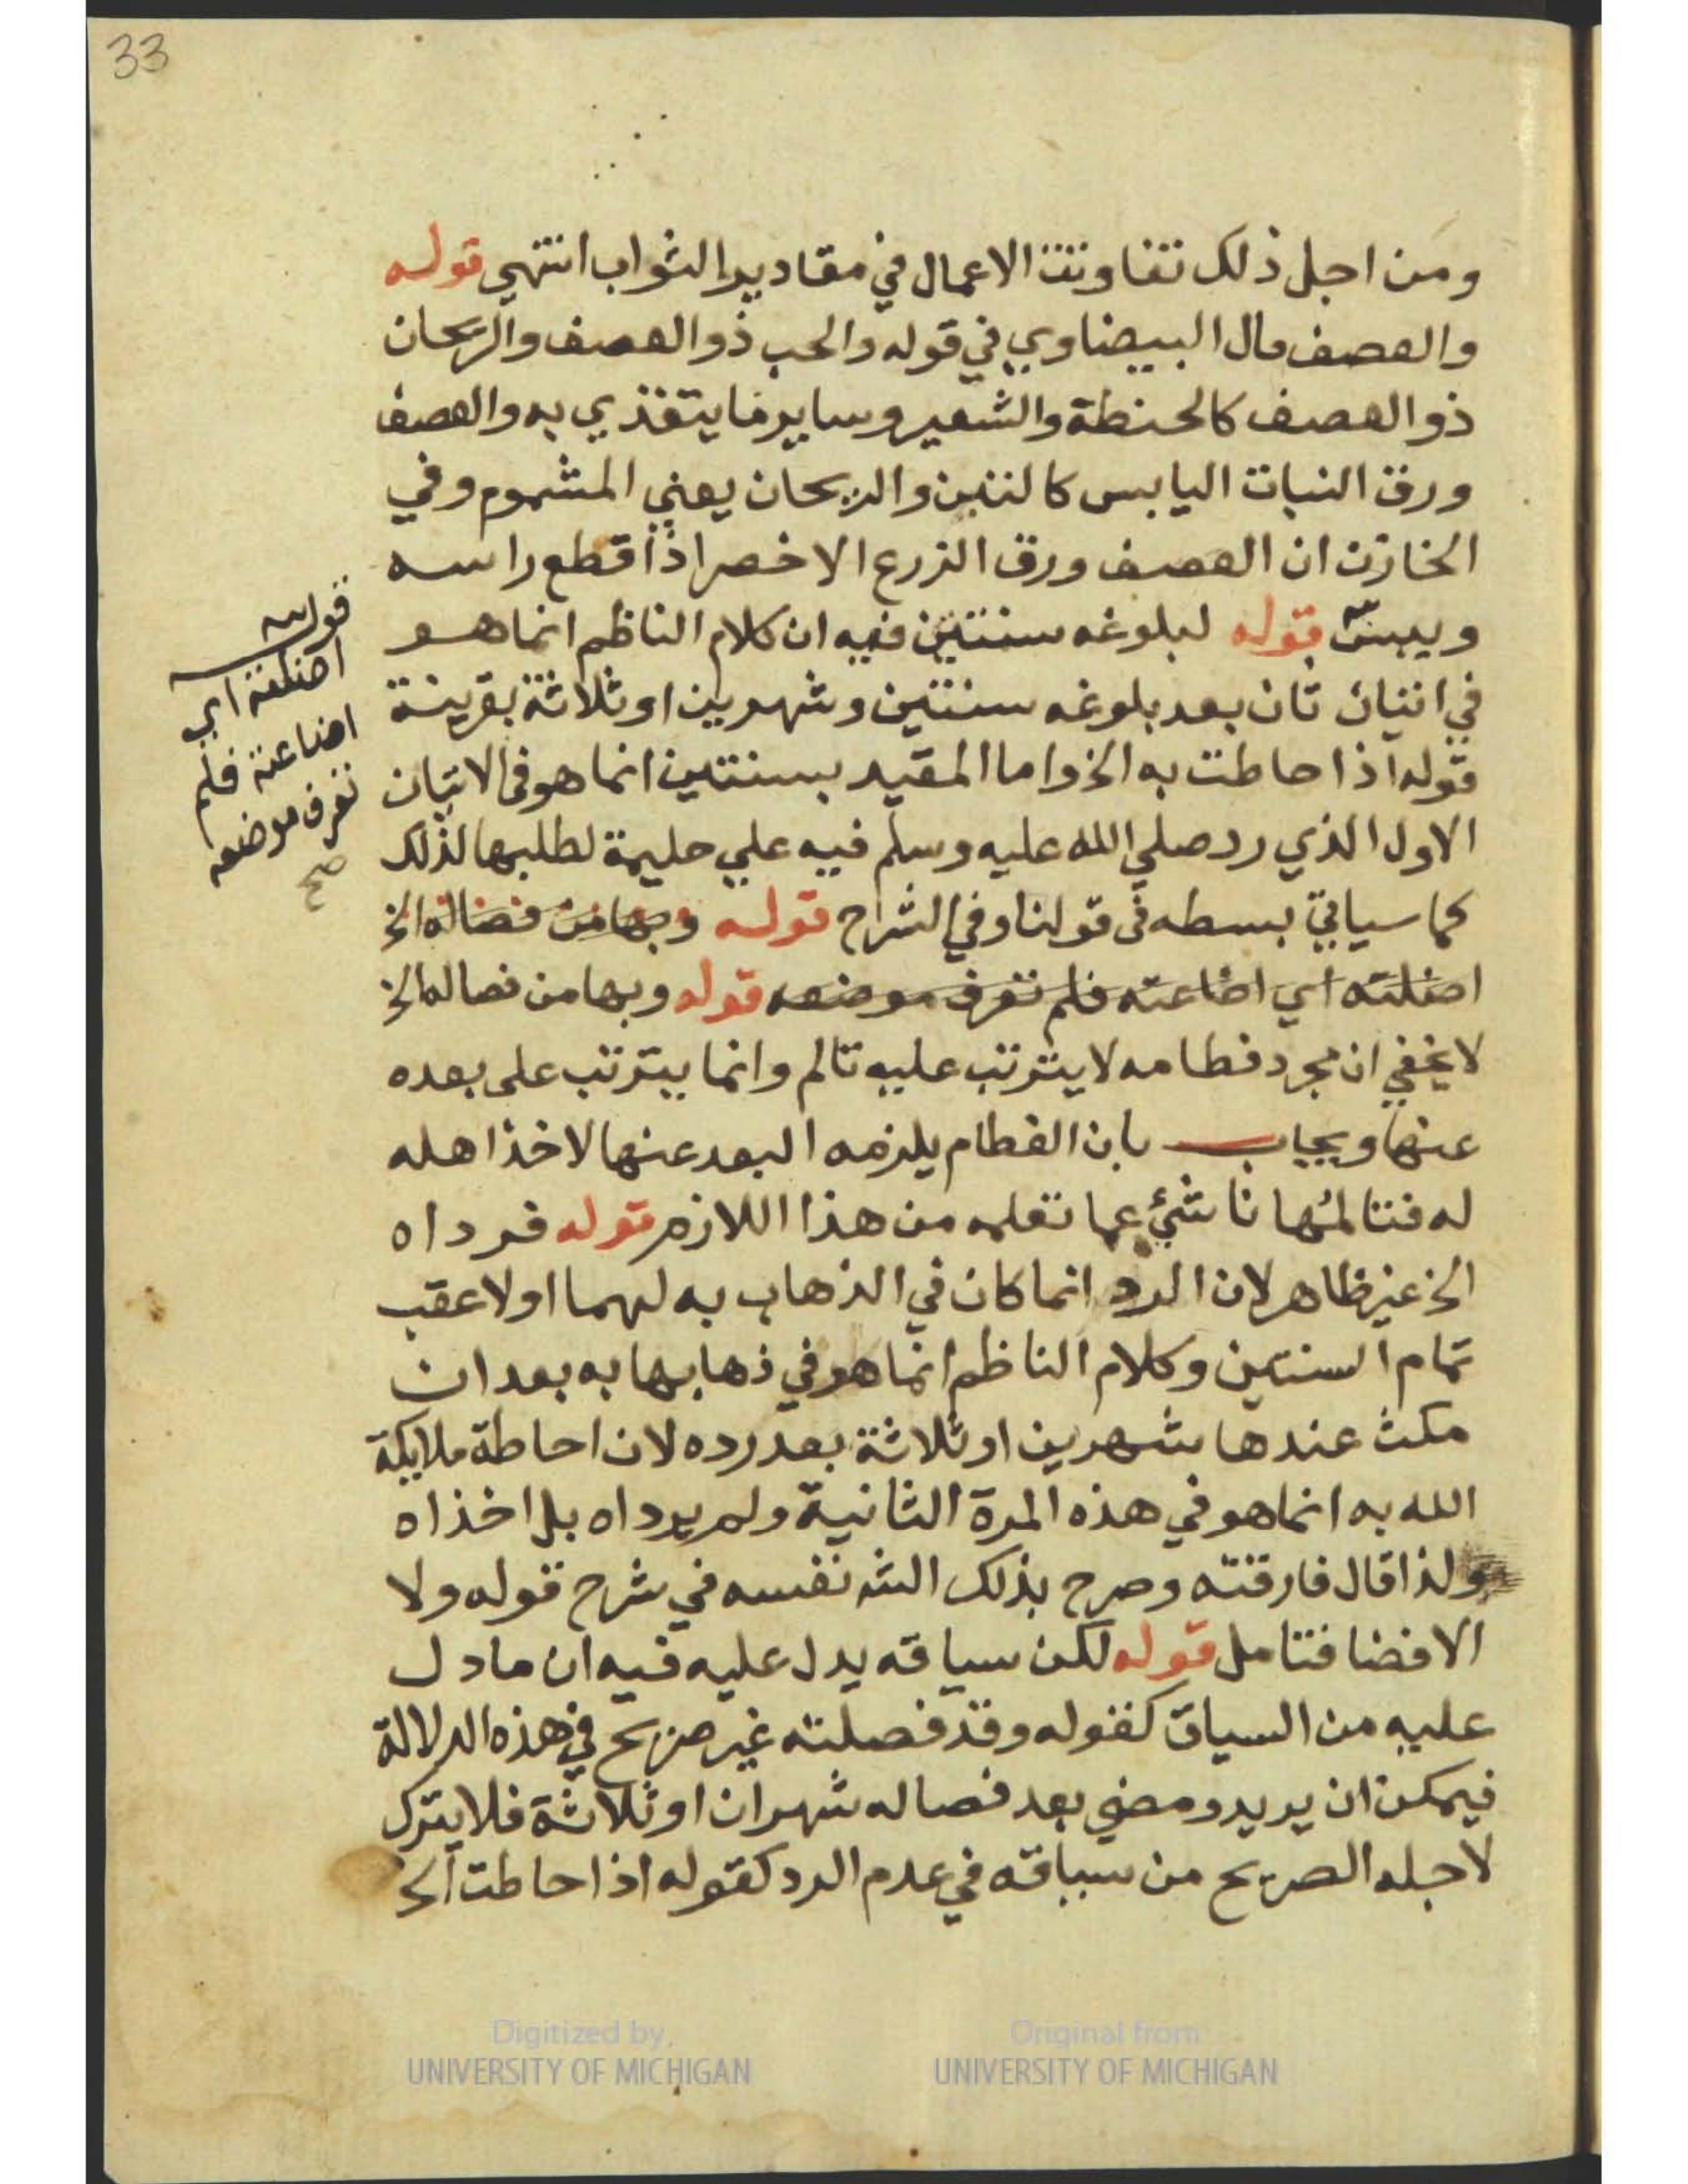 33
ومن اجل ذلك تفاوتت الاعمال في مقادير الثواب انتهي قوله
والعصف قال البيضاوي في قوله والحب ذو العصف والريحان
ذو العصف كالحنطة والشعير وساير ما يتغذي به والعصف
ورق النبات اليابس كالتبن والريحان يعني المشموم وفي
الخازن ان العصف ورق الزرع الاخضر اذا قطع راسه
ويبس قوله لبلوغه سنتين فيه ان كلام الناظم انما هو
في اتيان ثان بعد بلوغه سنتين وشهرين او ثلاثة بقرينة
قوله اذا حاطت به الخ واما المقيد بسنتين انما هو في الاتيان
الاول الذي رد صلي الله عليه وسلم فيه علي حليمة لطلبها لذلك
كما سياتي بسطه في قولنا وفي الشراح قوله وبها من فصاله الخ
اضلته اي اضاعته فلم تعرف موضعه قوله وبها من فصاله الخ
لا يخفي ان مجرد فطامه لا يترتب عليه تالم وانما يترتب على بعده
عنها ويجاب بان الفطام يلزمه البعد عنها لاخذ اهله
له فتالمها ناشئ عما تعلمه من هذا اللازم قوله فرداه
الخ غير ظاهر لان الرد انما كان في الذهاب به لهما اولا عقب
تمام السنتين وكلام الناظم انما هو في ذهابها به بعد ان
مكث عندها شهرين او ثلاثة بعد رده لان احاطة ملايكة
الله به انما هو في هذه المرة الثانية ولم يرداه بل اخذاه
ولذا قال فارقته وصرح بذلك الش نفسه في شرح قوله ولا
الافضا فتامل قوله لكن سياقه يدل عليه فيه ان ما دل
عليه من السياق كقوله وقد فصلته غير صريح في هذه الدلالة
فيمكن ان يريد ومضي بعد فصاله شهران او ثلاثة فلا يترك
لاجله الصريح من سياقه في عدم الرد كقوله اذا حاطت الخ
قوله
اضلته اي
اضاعته فلم
تعرف موضعه
صح
Digitized by
UNIVERSITY OF MICHIGAN
Original from
UNIVERSITY OF MICHIGAN